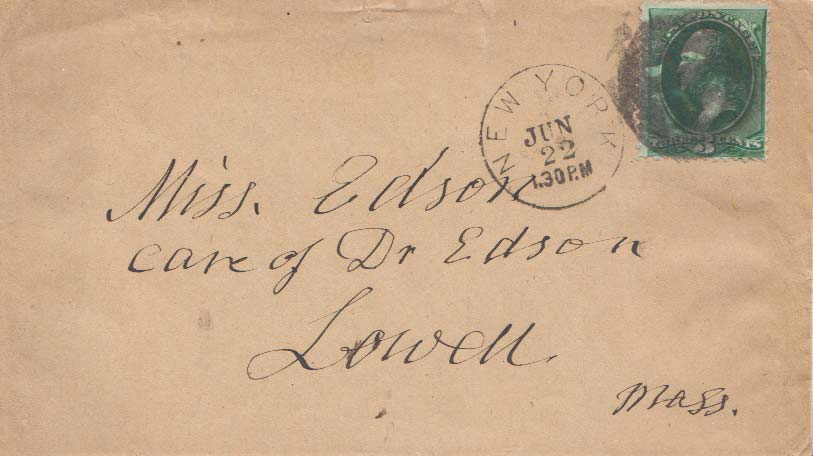 U.S. POSTAGE
THREE 3 CENTS
NEW YORK
JUN
22
1.30 P.M
Miss. Edson
care of Dr Edson
Lowell
Mass.